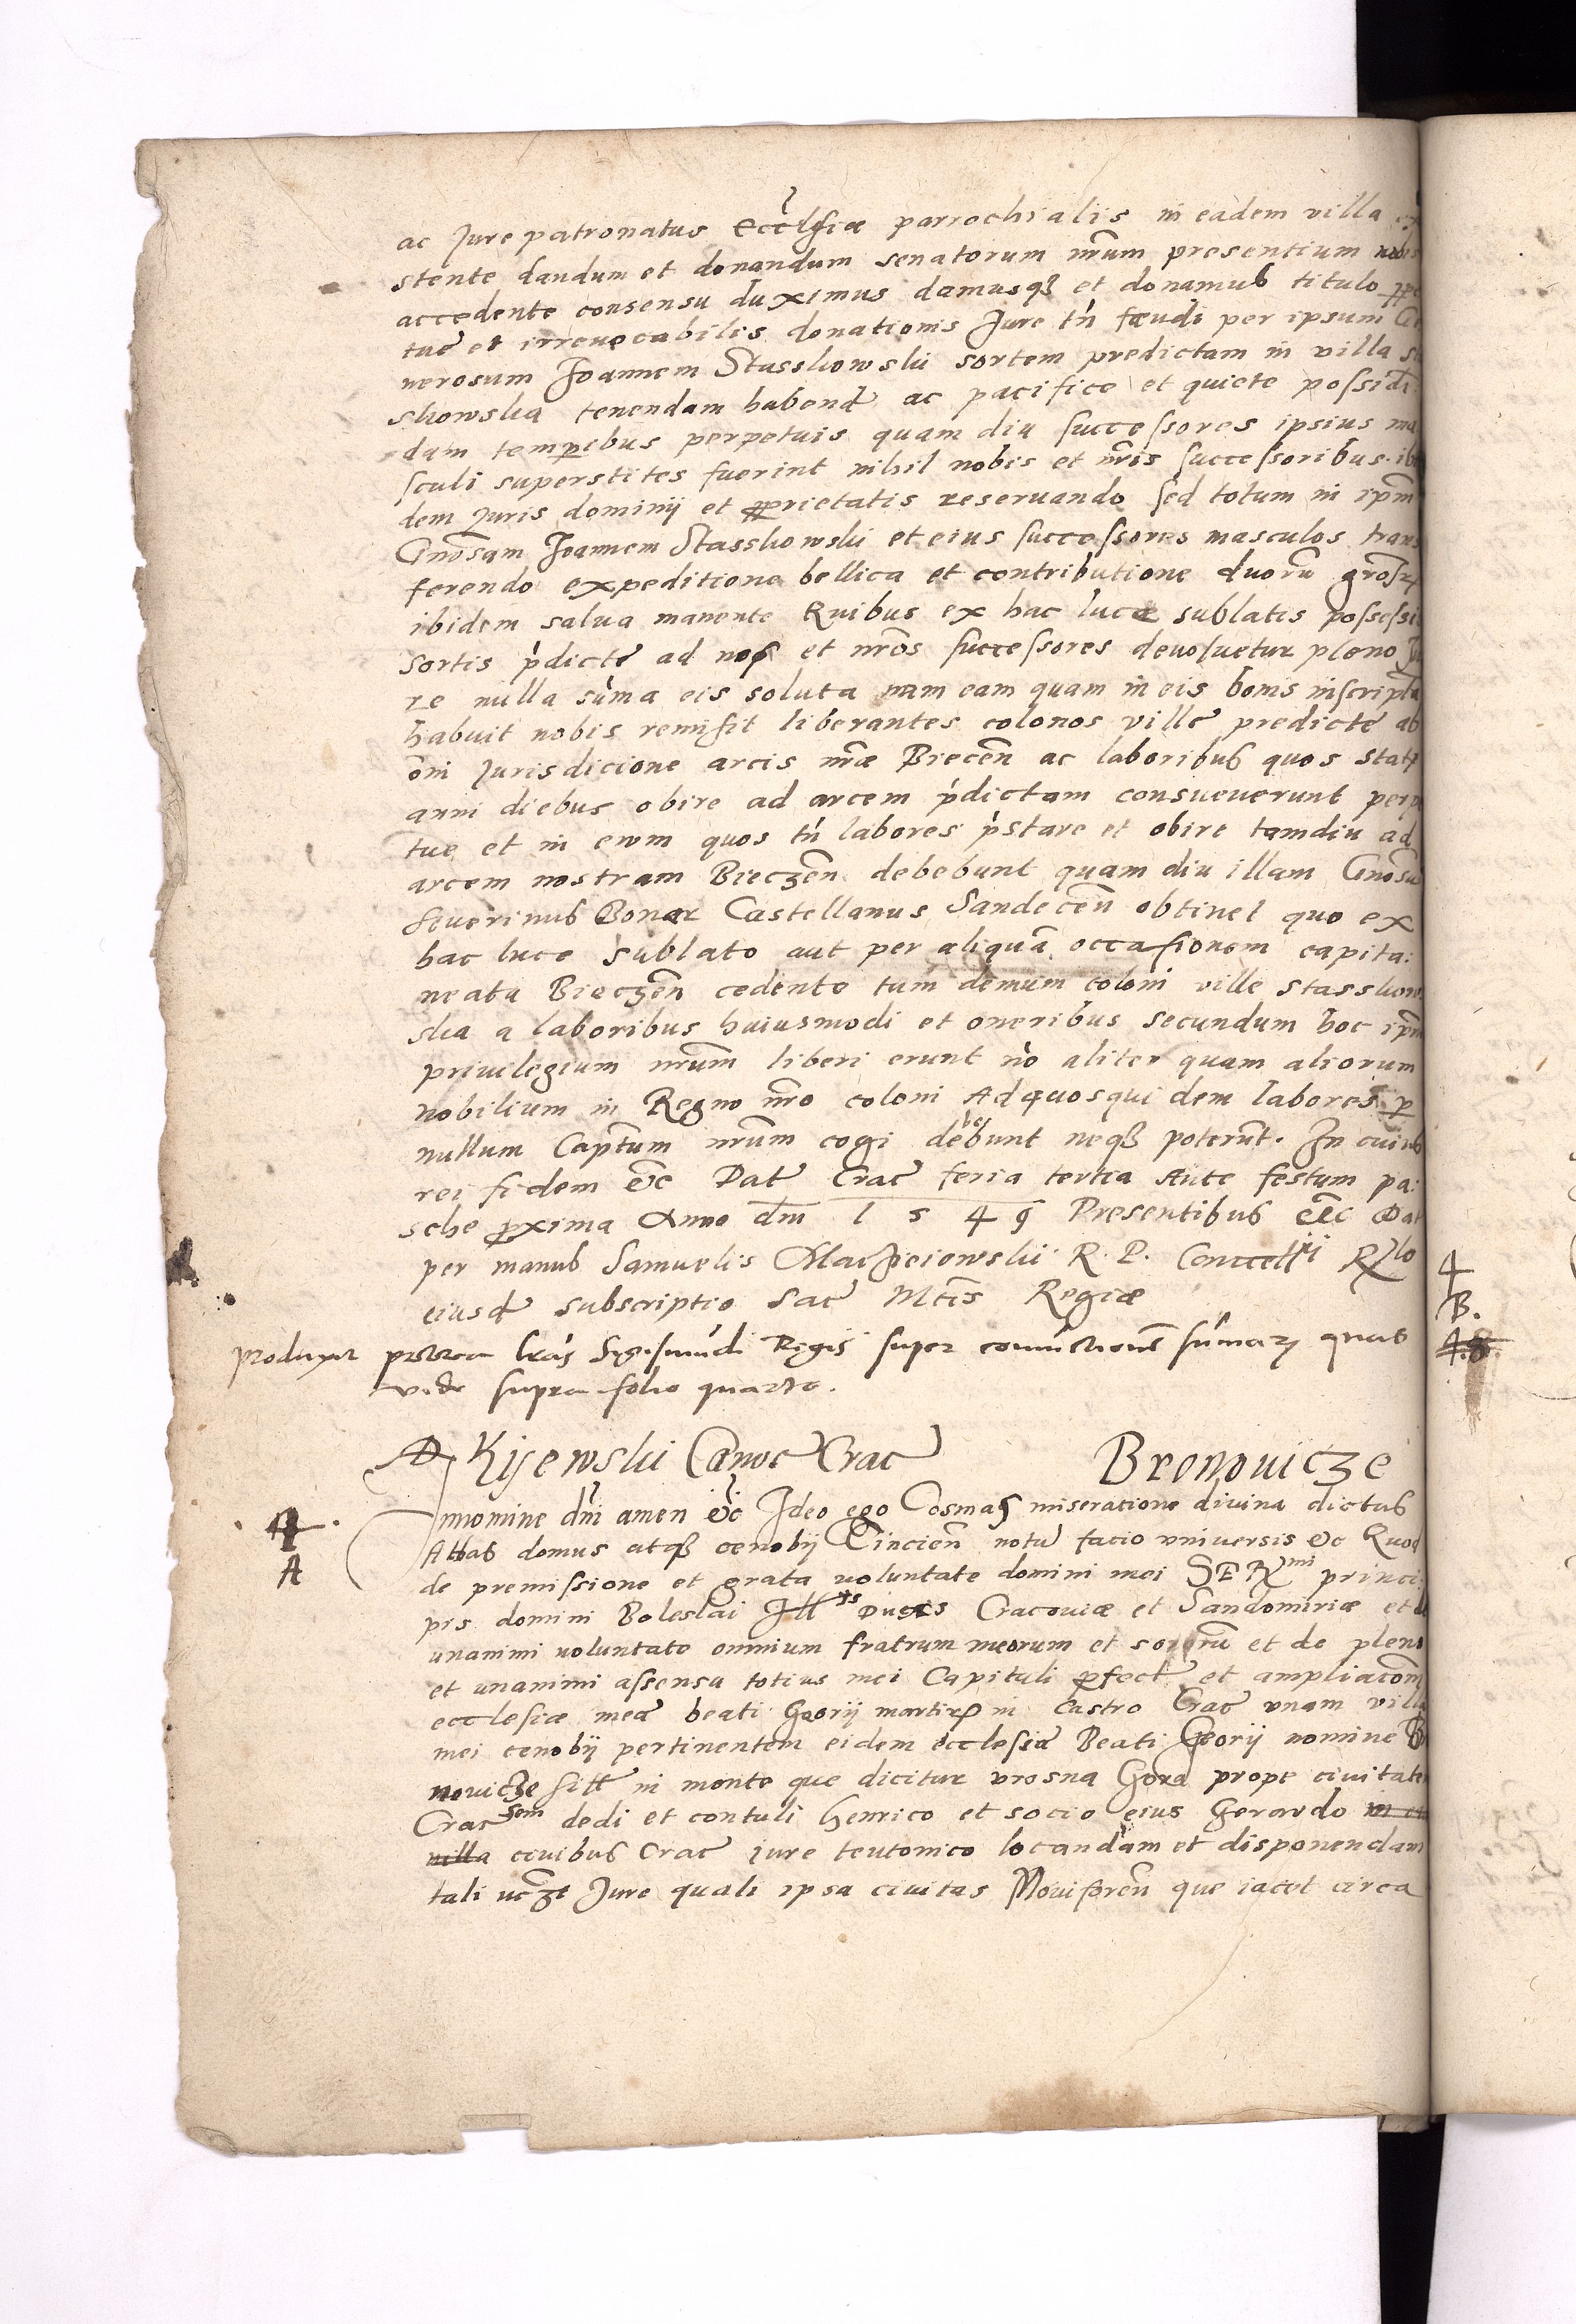 ac Jure patronatus Eccl̃siæ parrochialis in eadem villa
stente dandum et donandum senatorum nr̃um presentium nobis
accedente consensu duximus damusqȝ et donamus titulo
tue et irreuocabilis donationis Jure tñ fœudi per ipsum Ge
nerosum Joannem Stasskowski sortem predictam in villa
skowska tenendam habend ac pacifice et quiete possid
dam temꝑibus perpetuis quam diu successores ipsius ma
sculi superstites fuerint nihil nobis et nr̃is successoribus ibi
dem Juris dominij et ꝓprietatis reseruando sed totum in ipm̃
Gnõsam Joannem Stasskowski et eius successores masculos trans
ferendo expeditione bellica et contributione duorũ grõsꝝ
ibidem salua manente Quibus ex hac luce sublatis possessi
sortis p̃dicte ad nos et nr̃os successores deuoluetur pleno Ju
re nulla sũma eis soluta nam eam quam in eis bonis inscripta
habuit nobis remisit liberantes colonos ville predicte ab
oñi Jurisdicione arcis nr̃æ Biecen̄ ac laboribus quos stat
anni diebus obire ad arcem p̃dictam consueuerunt perp
tue et in euum quos tñ labores p̃stare et obire tamdiu ad
arcem nostram Bieczen̄ debebunt quam diu illam Gnõsu
Seuerinus Bonar Castellanus Sandecen̄ obtinet quo ex
hac luce sublato aut per aliquã occasionem capita:
neatu Bieczen̄ cedente tum demum coloni ville Stasskow
ska a laboribus huiusmodi et oneribus secundum hoc ipm̃
priuilegium nr̃um liberi erunt nõ aliter quam aliorum
nobilium in Regno nr̃o coloni Ad quosquidem labores ꝑ
nullum Capt̃um nr̃um cogi debebunt neqȝ poterũt. In cuius
rei fidem &c Dat Crac feria tertia Ante festum pa:
sche ꝓxima Anno dm̃ 1 5 4 9 Presentibus &c Dat
per manus Samuelis Maczieiowskij R. P. Cancellrij Rlo
eiusd subscriptio Sac Mtĩs Regiæ
produxit preterea lr̃as Sigismũdi Regis super conuictionẽ sũmarꝝ quas
vide supra folio quarto.
D Kijewski Canoc Crac Bronouicze
4
A
Innomine dñi amen &c Ideo ego Cosmas miseratione diuina dictus
Abbas domus atqȝ cenobij Tincien̄ notũ facio vniuersis &c Quod
de premissione et grata voluntate domini mei SER mi princi
pis domini Boleslai Ill is Ducis Cracouiæ et Sandomiriæ et de
unanimi voluntate omnium fratrum meorum et sororũ et de pleno
et unanimi assensu totius mei Capituli ꝑfect et ampliacõm
ecclesiæ mea beati Georij martiris in Castro Crac vnam villa
mei cenobij pertinentem eidem ecclesiæ Beati Georij nomine B
nouicze sitt in monte que dicitur vrosna Gora prope ciuitatem
Crac sem dedi et contuli Henrico et socio eius Gerardo
villa ciuibus Crac iure teutonico locandam et disponendam
tali vcz̃ Jure quali ipsa ciuitas Nouiforen̄ que iacet circa
4
B.